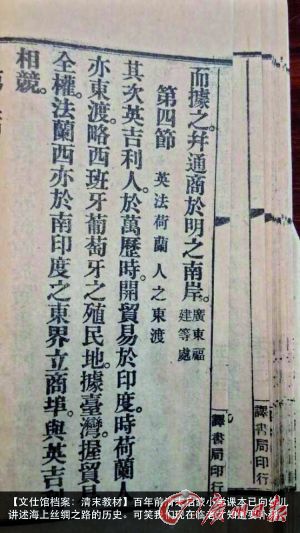 譯書局印行
譯書局印行
而據之。幷通商於明之南岸。廣東福建等處
第四節 英法荷蘭人之東渡
其次英吉利人。於萬歷時。開貿易於印度。時荷蘭人
亦東渡。略西班牙葡萄牙之殖民地。據臺灣。握貿
全權。法蘭西亦於南印度之東界立商埠。與英吉
相競。
【文仕馆档案：清末教材】百年前 启蒙小学课本已向幼儿
讲述海上丝绸之路的历史。可笑我们现在临老方知还要补课